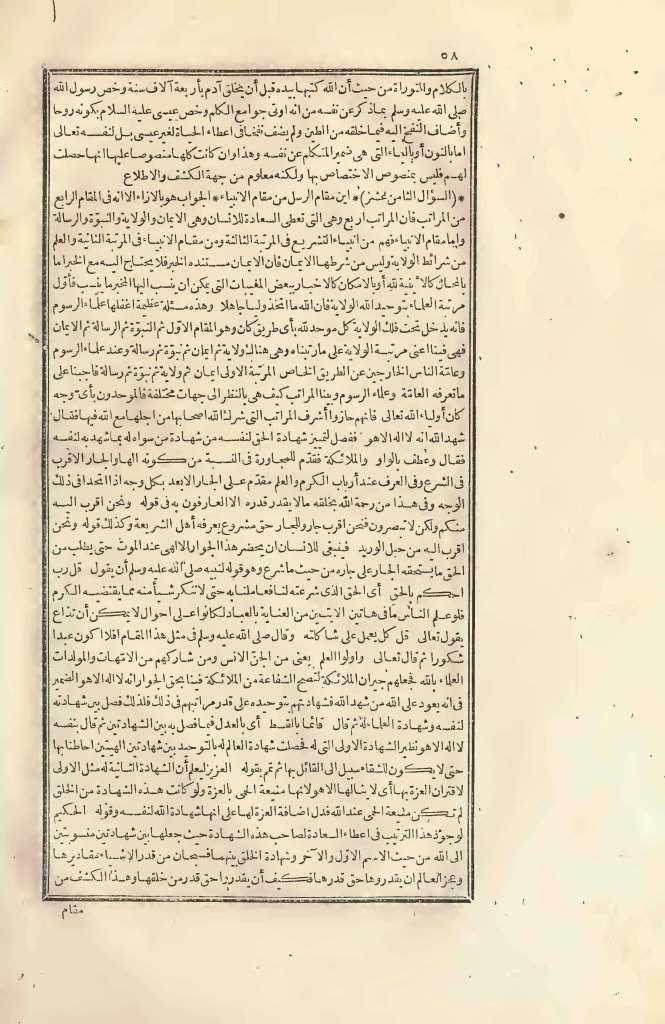 ٥٨
بالكلام والتوراة من حيث أن الله كتبها بيده قبل أن يخلق آدم بأربعة آلاف سنة وخص رسول الله
صلى الله عليه وسلم بماذكر عن نفسه من انه اوتى جوامع الكلم وخص عيسى عليه السلام بكونه روحا
وأضاف النفخ اليه فيما خلقه من الطين ولم يضف نفخا فى اعطاء الحياة لغير عيسى بل لنفسه تعالى
امابالنون أو بالياء التى هى ضمير المتكلم عن نفسه وهذا وان كانت كلها منصوصا عليها انها حصلت
لهم فليس بمنصوص الاختصاص بها ولكنه معلوم من جهة الكشف والاطلاع
*(السؤال الثامن عشر)* اين مقام الرسل من مقام الانبياء* الجواب هو بالازاء الا انه فى المقام الرابع
من المراتب فان المراتب اربع وهى التى تعطى السعادة للانسان وهى الايمان والولاية والنبوّة والرسالة
وامامقام الانبياء فهم من انبياء التشريع فى المرتبة الثالثة ومن مقام الانبياء فى المرتبة الثانية والعلم
من شرائط الولاية وليس من شرطها الايمان فان الايمان مستنده الخبر فلا يحتاج اليه مع الخبر اما
بالمحال كالابنية لله أو بالامكان كالاخبار ببعض المغيبات التى يمكن ان ينسب اليها المخبر ما ينسب فأوّل
مرتبة العلماء بتوحيد الله الولاية فان الله ما اتخذ وليا جاهلا وهذه مسئلة عظيمة اغفلها علماء الرسوم
فانه يدخل تحت فلك الولاية كل موحد لله بأى طريق كان وهو المقام الاوّل ثم النبوّة ثم الرسالة ثم الايمان
فهى فينا اعنى مرتبة الولاية على مارتبناه وهى هنالك ولاية ثم ايمان ثم نبوّة ثم رسالة وعند علماء الرسوم
وعامّة الناس الخارجين عن الطريق الخاص المرتبة الاولى ايمان ثم ولاية ثم نبوّة ثم رسالة فاجبنا على
ماتعرفه العامّة وعلماء الرسوم وبينا المراتب كيف هى بالنظر الى جهات مختلفة فالموحدون بأى وجه
كان أولياء الله تعالى فانهم حازوا أشرف المراتب التى شرك الله اصحابها من اجلها مع الله فيها فقال
شهد الله انه لااله الاهو ففصل لتمييز شهادة الحق لنفسه من شهادة من سواه له بما شهد به لنفسه
فقال وعطف بالواو والملائكة فقدّم للمجاورة فى النسبة من كونه الها والجار الاقرب
فى الشرع وفى العرف عند أرباب الكرم والعلم مقدّم على الجار الابعد بكل وجه اذا اتحدا فى ذلك
الوجه وفى هذا من رحمة الله بخلقه مالايقدر قدره الا العارفون به فى قوله ونحن اقرب اليه
منكم ولكن لا تبصرون فنحن اقرب جار وللجار حق مشروع يعرفه أهل الشريعة وكذلك قوله ونحن
اقرب اليه من حبل الوريد فينبغى للانسان ان يحضر هذا الجوار الالهى عند الموت حتى يطلب من
الحق ما يستحقه الجار على جاره من حيث ما شرع وهو قوله لنبيه صلى الله عليه وسلم أن يقول قل رب
احكم بالحق أى الحق الذى شرعته لنا فعاملنا به حتى لا ننكر شيأ منه مما يقتضيه الكرم
فلو علم الناس ما فى هاتين الايتين من العناية بالعباد لكانوا على احوال لا يمكن أن تذاع
يقول تعالى قل كل يعمل على شاكلته وقال صلى الله عليه وسلم فى مثل هذا المقام افلا اكون عبدا
شكورا ثم قال تعالى واولوا العلم يعنى من الجنّ والانس ومن شاركهم من الامّهات والمولدات
العلماء بالله فجعلهم جيران الملائكة لتصح الشفاعة من الملائكة فينا بحق الجوار انه لااله الاهو الضمير
فى انه يعود على الله من شهد الله فشهادتهم بتوحيده على قدر مراتبهم فى ذلك فلذلك فصل بين شهادته
لنفسه وشهادة العلماء له ثم قال قائما بالقسط أى بالعدل فيما فصل به بين الشهادتين ثم قال بنفسه
لااله الاهو نظير الشهادة الاولى التى له فحصلت شهادة العالم له بالتوحيد بين شهادتين الهيتين احاطتابها
حتى لا يكون للشقاء سبيل الى القائل بها ثم تمم بقوله العزيز ليعلم أن الشهادة الثانية له مثل الاولى
لاقتران العزة بها أى لا ينالها الا هو لانها منيعة الحمى بالعزة ولو كانت هذه الشهادة من الخلق
لم تكن منيعة الحمى عند الله فدل اضافة العزة لها على انها شهادة الله لنفسه وقوله الحكيم
لوجود هذا الترتيب فى اعطاء السعادة لصاحب هذه الشهادة حيث جعلها بين شهادتين منسوبتين
الى الله من حيث الاسم الاوّل والآخر وشهادة الخلق بينهما فسبحان من قدر الاشياء مقاديرها
وعجز العالم ان يقدروها حق قدرها فكيف أن يقدروا حق قدر من خلقها وهذا الكشف من
مقام